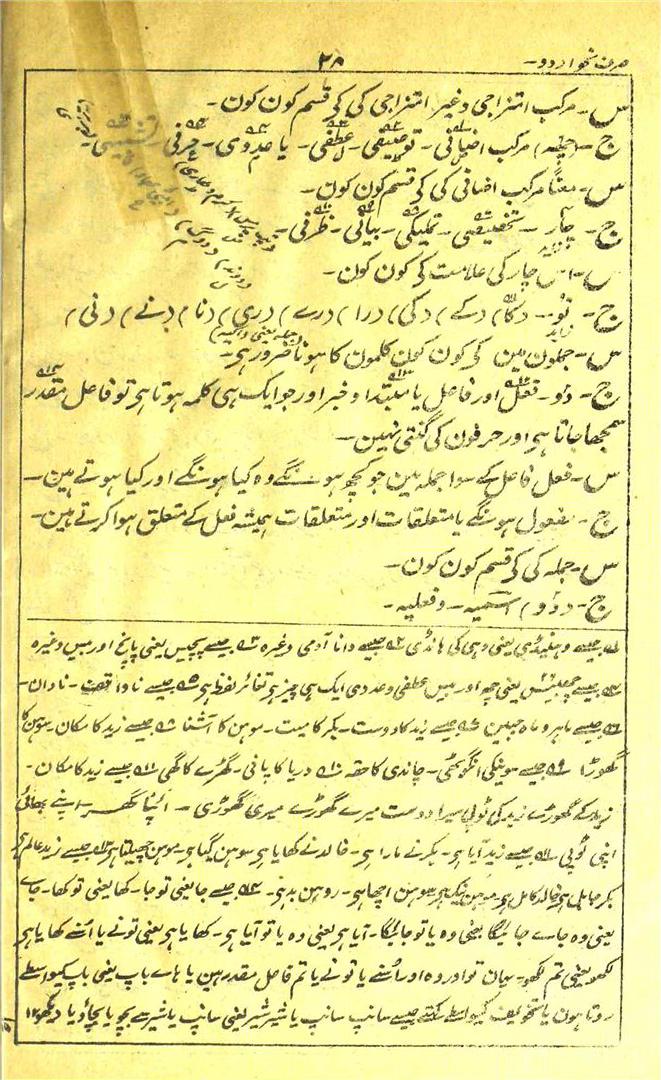 صرف نحو اردو۔ ۲۸
س۔ مرکب امتزاجی وغیر امتزاجی کی کَے قسم کون کون۔
ج۔ (چھہ) مرکب اضافی۔ توصیفی۔ عطفی۔ یا عددی۔ حرفی۔
س۔ معناً مرکب اضافی کی کَے قسم کون کون۔
ج۔ چار۔ تخصیصی۔ تملیکی۔ بیانی۔ ظرفی۔
س۔ اس چار کی علامت کَے کون کون۔
ج۔ نَو۔ (کا) (کے) (کی) (را) (رے) (ری) (نا) (نے) (نی)
س۔ جملون مین کَے کون کون کلمون کا ہونا ضرور ہی۔
ج۔ دو۔ فعل اور فاعل یا مبتدا و خبر اور جو ایک ہی کلمہ ہوتا ہی تو فاعل مقدر
سمجھا جاتا ہی اور حرفون کی گنتی نہین۔
س۔ فعل فاعل کے سوا جملہ مین جو کچھ ہونگے وہ کیا ہونگے اور کیا ہوتے ہین۔
ج۔ مفعول ہونگے یا متعلقات اور متعلقات ہمیشہ فعل کے متعلق ہوا کرتے ہین۔
س۔ جملہ کی کَے قسم کون کون۔
ج۔ (دو) اسمیہ۔ و فعلیہ۔
یعنی دہی کی ہانڈی جیسے دانا آدمی وغیرہ جیسے پچیس یعنی پانچ اور بیس وغیرہ
جیسے چھبیس یعنی چھہ اور بیس عطفی و عددی ایک ہی چیز ہی تغائر لفظ ہی جیسے ناواقف۔ نادان۔
جیسے ماہرو ماہ جبین جیسے زید کا دوست۔ بکر کا میت۔ موہن کا آشنا جیسے زید کا مکان۔ موہن کا
گھوڑا جیسے سونیکی انگوٹھی۔ چاندی کا حقہ دریا کا پانی۔ گھڑے کا گھی جیسے زید کا مکان۔
زید کے گھوڑے زید کی ٹوپی میرا دوست میرے گھوڑے میری گھوڑی۔ اپنا گھر۔ اپنے بھائی
اپنی ٹوپی جیسے زید آیا ہی۔ بکر نے مارا ہی۔ خالد نے کھایا ہی سوہن گیا ہی۔ موہن جیسے زید عالم ہی
بکر جاہل ہی خالد کامل ہی موہن نیک ہی سوہن اچھا ہی۔ روہن بد ہی۔ جیسے جا یعنی تو جا۔ کھا یعنی تو کھا۔ جاے
یعنی وہ جاے جائیگا یعنی وہ یا تو جائیگا۔ آیا ہی یعنی وہ یا تو آیا ہی۔ کھایا ہی یعنی تونے یا اسنے کھایا ہی
لکھو یعنی تم لکھو۔ یہان تو اور وہ اور اسنے یا تونے یا تم فاعل مقدر ہین یا ہاے باپ یعنی باپ کیواسطے
روتا ہون یا تخویف کیواسطے جیسے سانپ سانپ یا شیر شیر یعنی سانپ یا شیر سے بچو یا بچاؤ یا دیکھو ۱۲